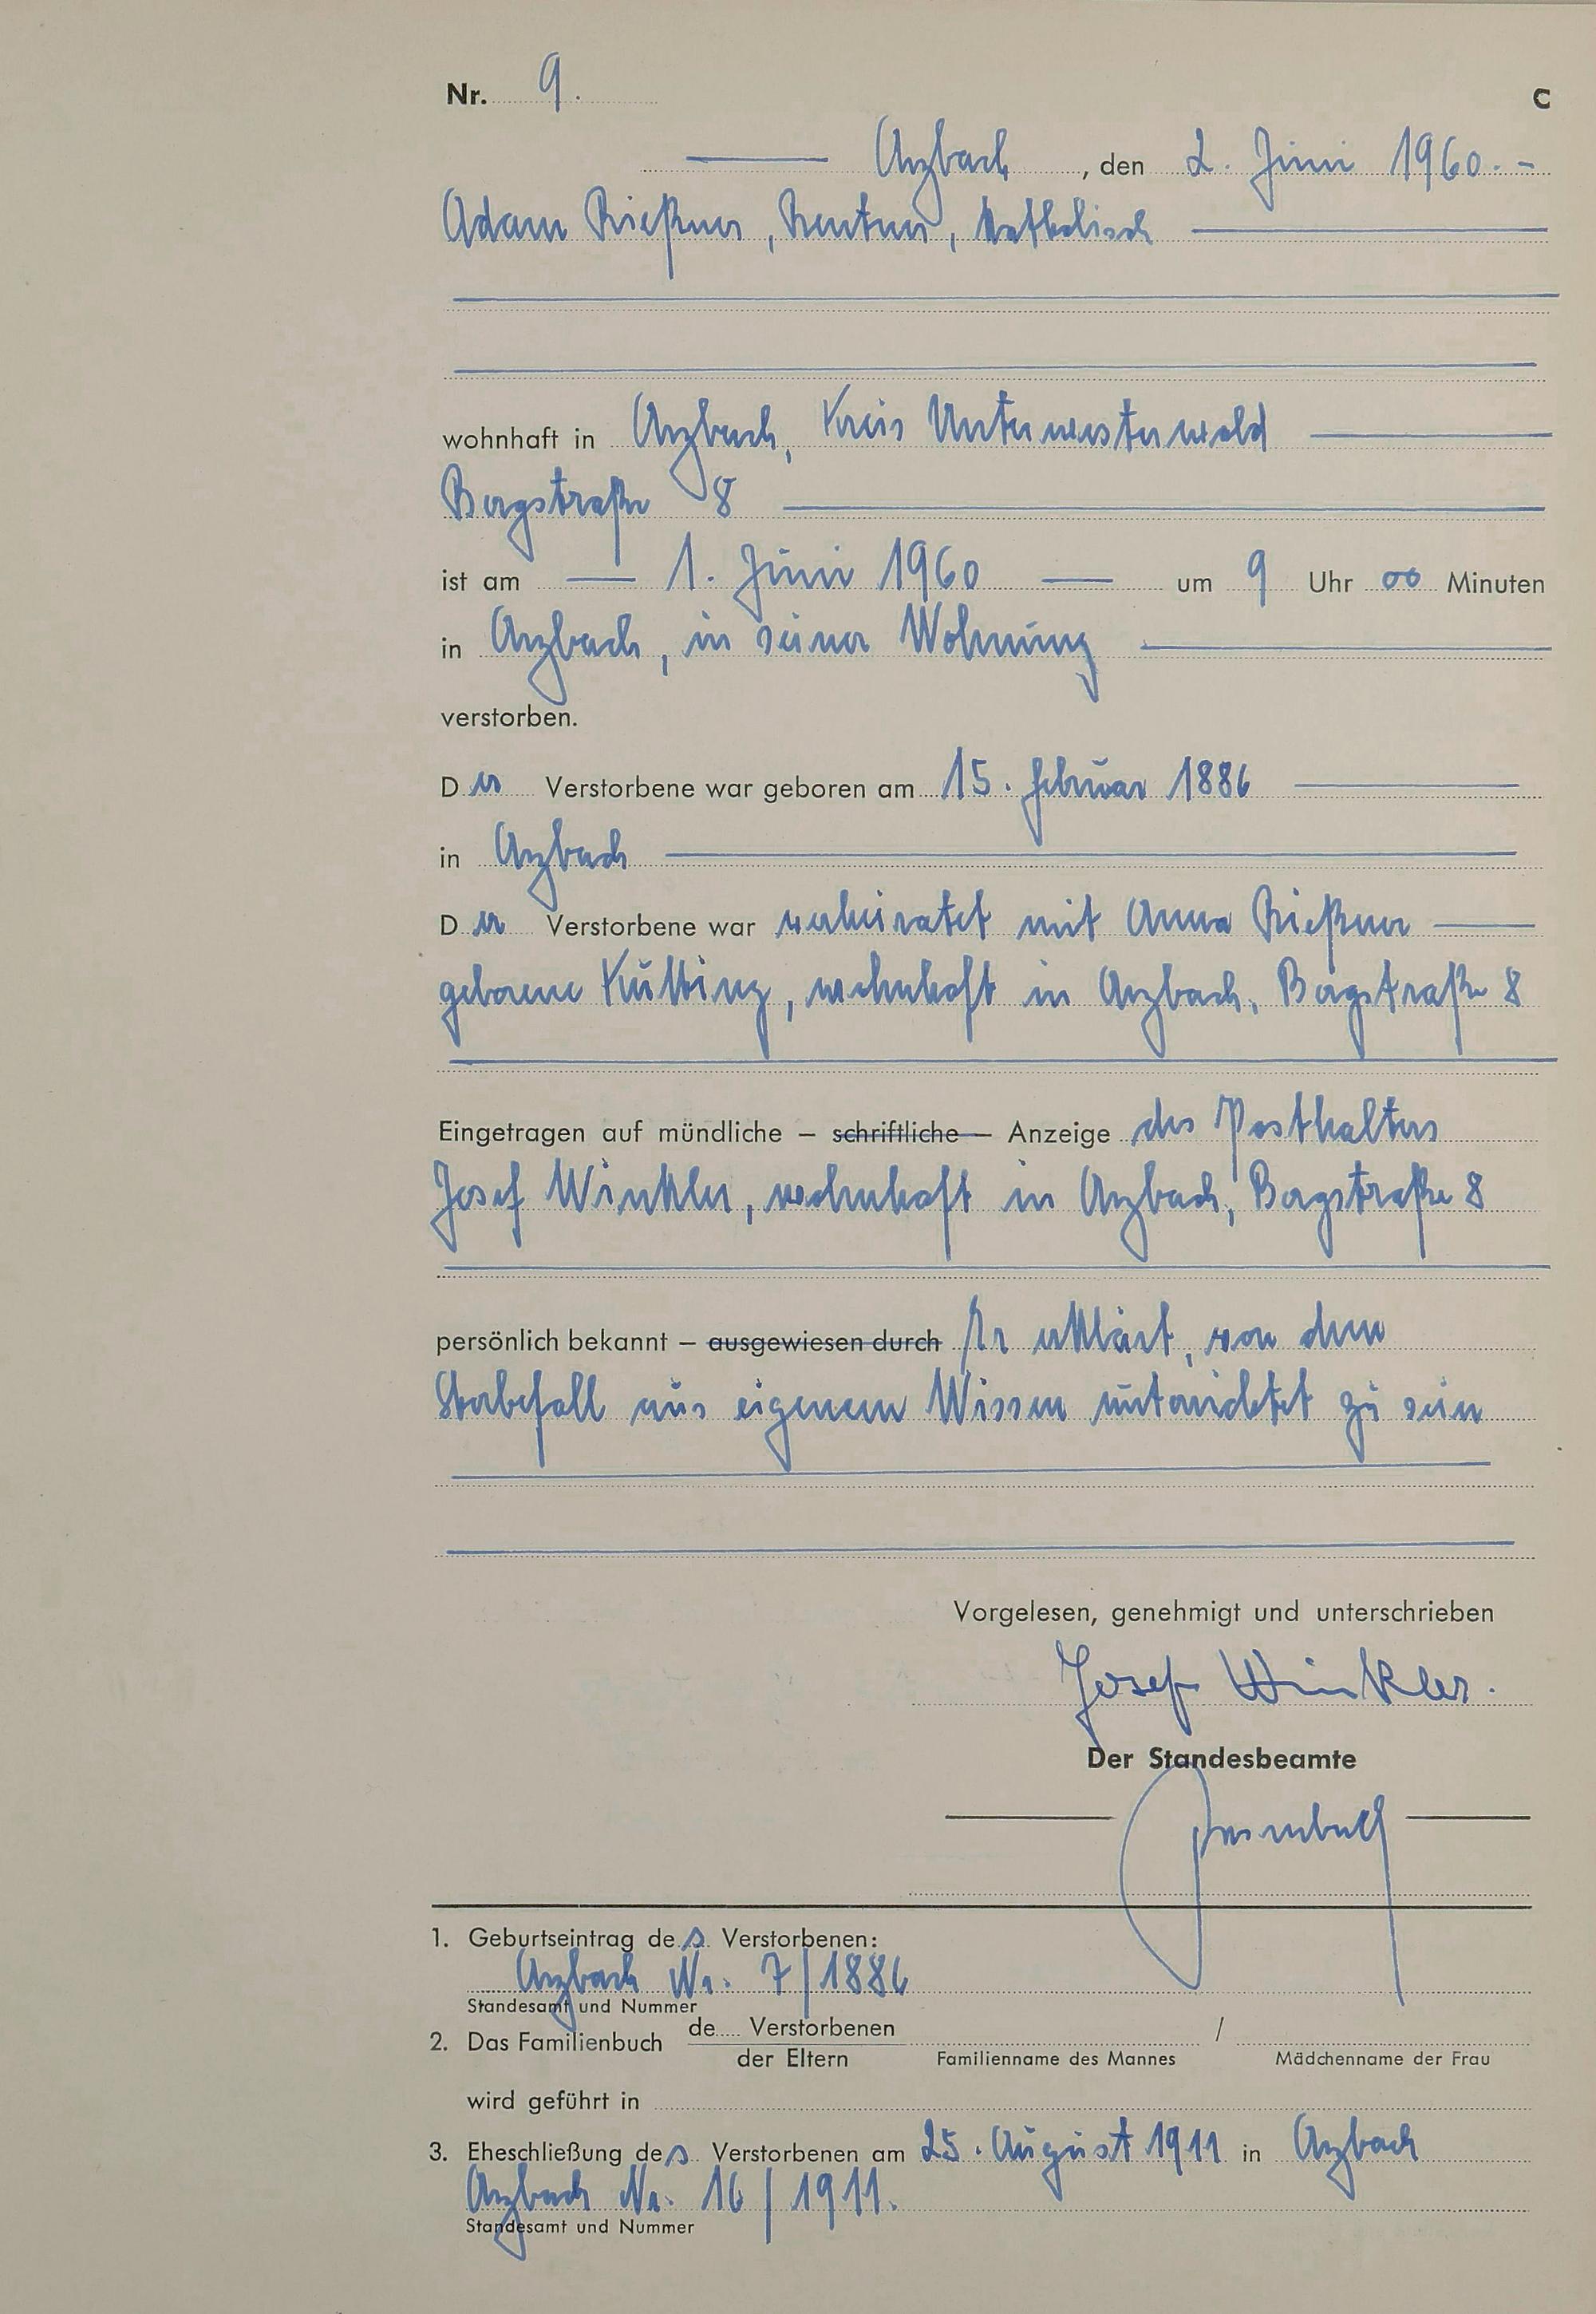 Nr. 9. C
Arzbach, den 2. Juni 1960. -
Adam Rießner, Rentner, katholisch
wohnhaft in Arzbach, Kreis Unterwesterwald
Bergstraße 8
ist am 1. Juni 1960 um 9 Uhr 00 Minuten
in Arzbach, in seiner Wohnung
verstorben.
Der Verstorbene war geboren am 15. Februar 1886
in Arzbach
Der Verstorbene war verheiratet mit Anna Rießner
geborene, wohnhaft in Arzbach, Bergstraße 8
Eingetragen auf mündliche – schriftliche – Anzeige des Posthalters
Josef Winkler, wohnhaft in Arzbach, Bergstraße 8
persönlich bekannt – ausgewiesen durch Er erklärt, von dem
Sterbefall aus eigenem Wissen unterrichtet zu sein
Vorgelesen, genehmigt und unterschrieben
Josef Winkler.
Der Standesbeamte
1. Geburtseintrag des Verstorbenen:
Arzbach Nr. 7/1886
Standesamt und Nummer
2. Das Familienbuch de..... Verstorbenen /
der Eltern Familienname des Mannes Mädchenname der Frau
wird geführt in
3. Eheschließung des Verstorbenen am 25. August 1911 in Arzbach
Arzbach Nr. 16/1911.
Standesamt und Nummer